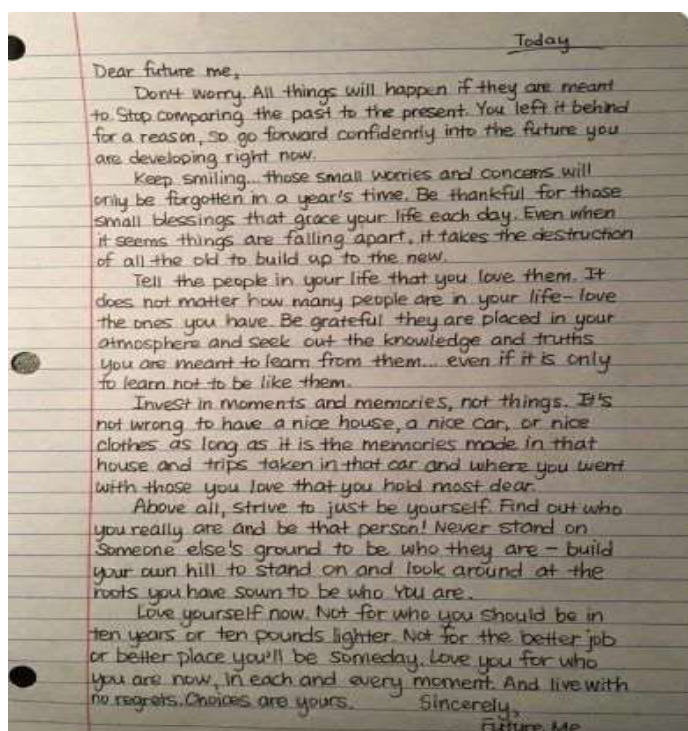 Today
Dear future me,
Don't worry. All things will happen if they are meant
to. Stop comparing the past to the present. You left it behind
for a reason, so go forward confidently into the future you
are developing right now.
Keep smiling... those small worries and concerns will
only be forgotten in a year's time. Be thankful for those
small blessings that grace your life each day. Even when
it seems things are falling apart, it takes the destruction
of all the old to build up to the new.
Tell the people in your life that you love them. It
does not matter how many people are in your life - love
the ones you have. Be grateful they are placed in your
atmosphere and seek out the knowledge and truths
you are meant to learn from them... even if it is only
to learn not to be like them.
Invest in moments and memories, not things. It's
not wrong to have a nice house, a nice car, or nice
clothes as long as it is the memories made in that
house and trips taken in that car and where you went
with those you love that you hold most dear.
Above all, strive to just be yourself. Find out who
you really are and be that person! Never stand on
someone else's ground to be who they are - build
your own hill to stand on and look around at the
roots you have sown to be who you are.
Love yourself now. Not for who you should be in
ten years or ten pounds lighter. Not for the better job
or better place you'll be someday. Love you for who
you are now, in each and every moment. And live with
no regrets. Choices are yours. Sincerely,
Future Me